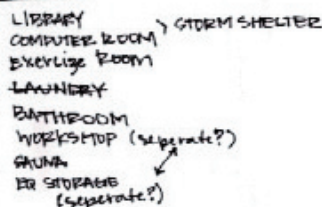 LIBRARY
COMPUTER ROOM > STORM SHELTER
Exercize Room
LAUNDRY
BATHROOM
WORKSHOP (seperate?)
SAUNA
EQ STORAGE
(seperate?)